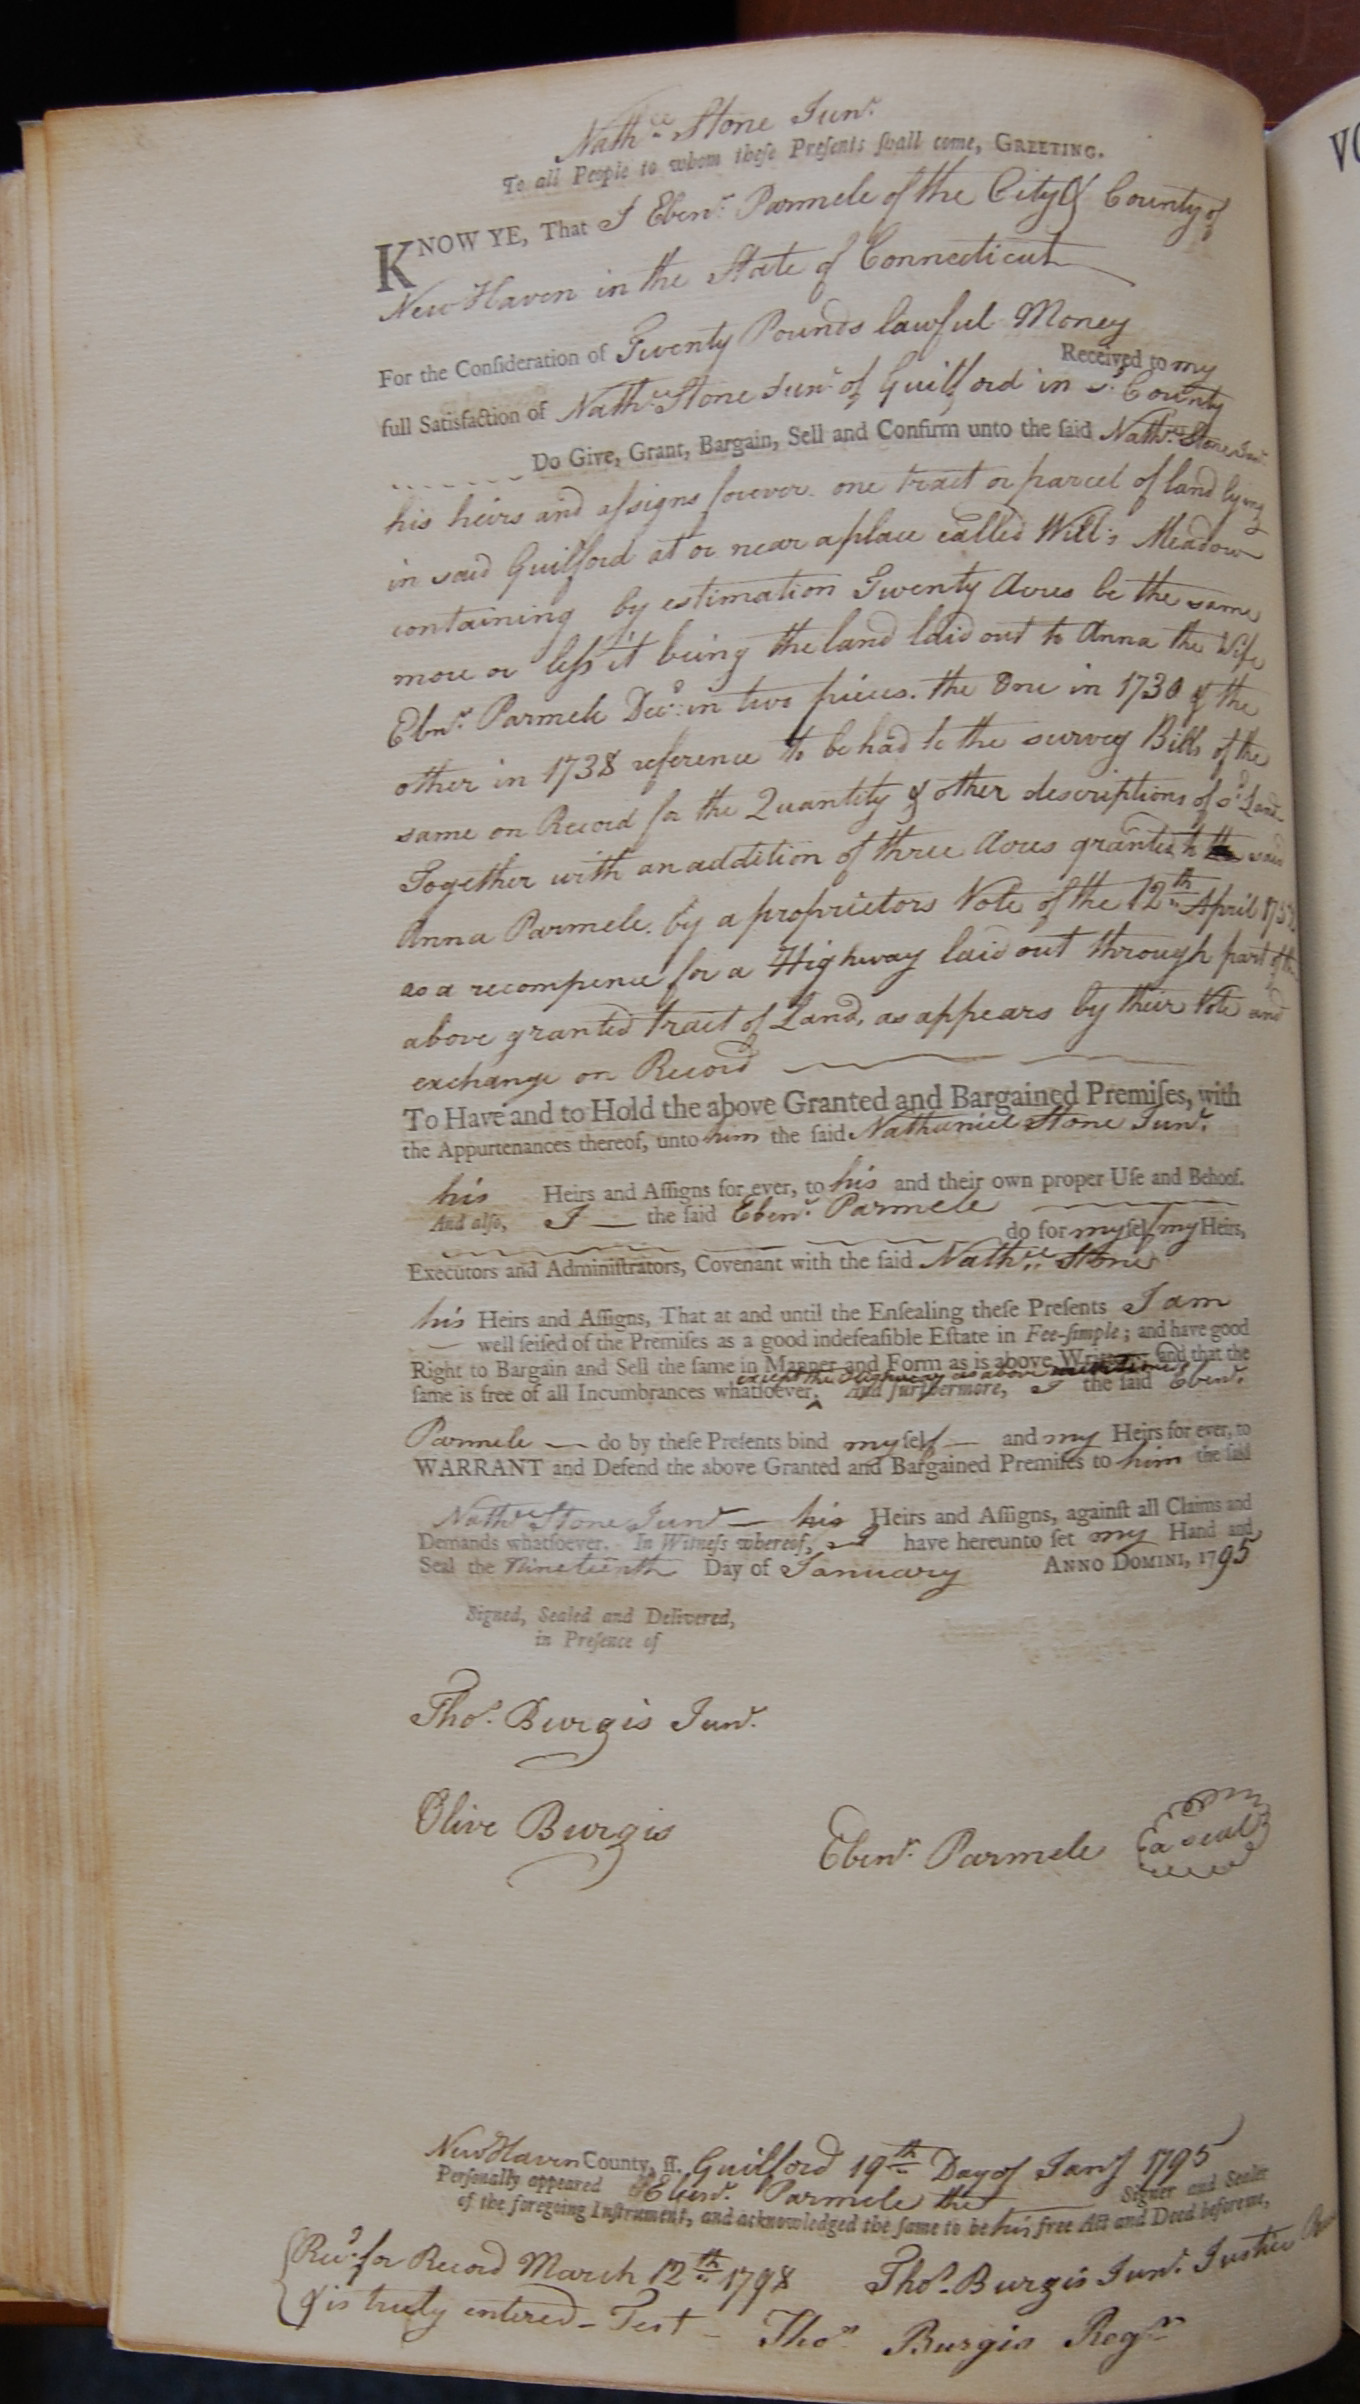 Nath.ll Stone Jun.r
To all People to whom theſe Preſents ſhall come, GREETING.
KNOW YE, That I Eben.r Parmele of the City & County of
New Haven in the State of Connecticut
For the Conſideration of Twenty Pounds lawful Money
Received to my
full Satisfaction of Nath.ll Stone Jun.r of Guilford in s.d County
Do Give, Grant, Bargain, Sell and Confirm unto the ſaid Nath.ll Stone Jun.r
his heirs and aſsigns forever one tract or parcel of land lying
in said Guilford at or near a place called Will's Meadow
containing by estimation Twenty Acres be the same
more or leſs it being the land laid out to Anna the Wife
Ebn.r Parmele Dec.d in two pieces. the One in 1730 & the
other in 1738 reference to be had to the survey Bills of the
same on Record for the Quantity & other descriptions of s.d Land
Together with an addition of three Acres granted to the said
Anna Parmele. by a proprietors Vote of the 12th April
as a recompence for a Highway laid out through part of the
above granted tract of Land, as appears by their Vote and
exchange on Record
To Have and to Hold the above Granted and Bargained Premiſes, with
the Appurtenances thereof, unto him the ſaid Nathaniel Stone Jun.r
his Heirs and Aſſigns for ever, to his and their own proper Uſe and Behoof.
And alſo, I the ſaid Eben.r Parmele
do for myſelf my Heirs,
Executors and Adminiſtrators, Covenant with the ſaid Nath.ll Stone
his Heirs and Aſſigns, That at and until the Enſealing theſe Preſents I am
well ſeiſed of the Premiſes as a good indefeaſible Eſtate in Fee-ſimple; and have good
Right to Bargain and Sell the ſame in Manner and Form as is above Written and that the
except the Highway as above
ſame is free of all Incumbrances whatſoever. And furthermore, I the ſaid Eben.r
Parmele do by theſe Preſents bind myſelf and my Heirs for ever, to
WARRANT and Defend the above Granted and Bargained Premiſes to him the ſaid
Nath.ll Stone Jun.r his Heirs and Aſſigns, againſt all Claims and
Demands whatſoever. In Witneſs whereof, I have hereunto ſet my Hand and
Seal the Nineteenth Day of January ANNO DOMINI, 1795
Signed, Sealed and Delivered,
in Preſence of
Tho.s Burgis Jun.r
Olive Burgis
Eben.r Parmele a seal
New Haven County, ſſ. Guilford 19th Day of Jany 1795
Perſonally appeared Eben.r Parmele the Signer and Sealer
of the foregoing Inſtrument, and acknowledged the ſame to be his free Act and Deed before me,
Tho.s Burgis Jun.r Justice Peace
Rec.d for Record March 12th 1798
& is truly entered - Test - Tho.s Burgis Reg.r